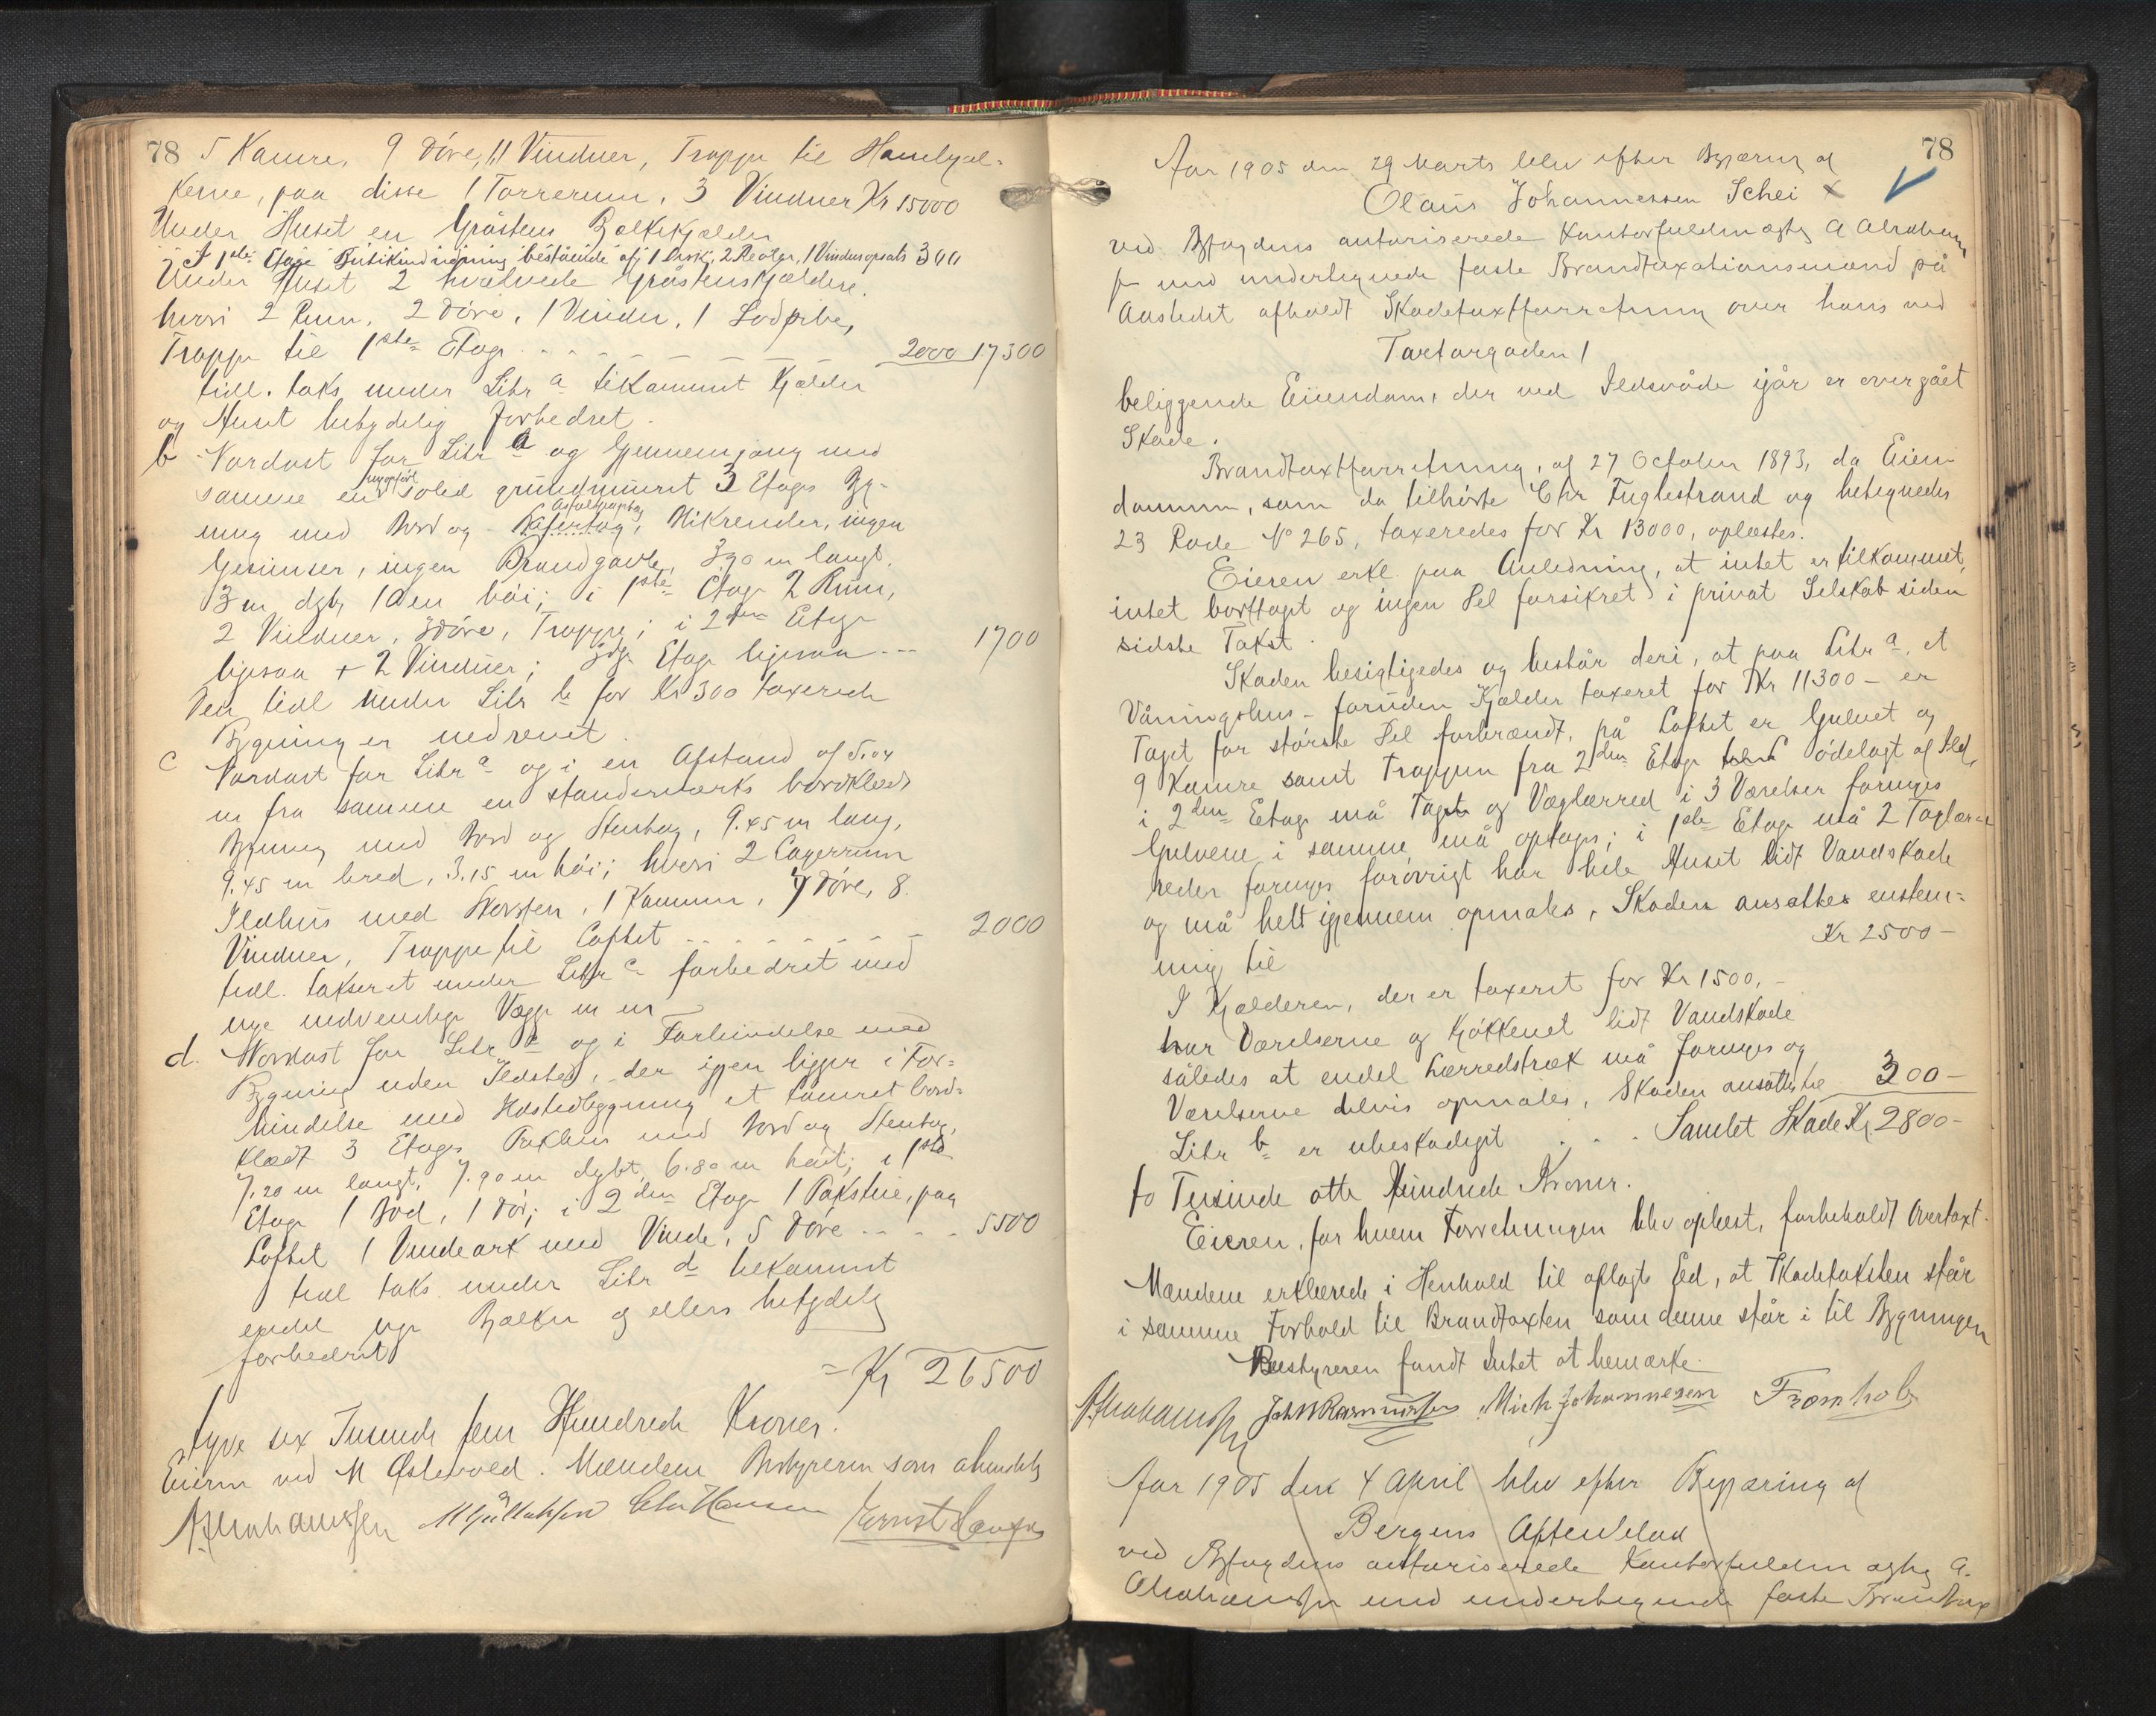 78 5 Kamre, 9 Døre, 11 Vinduer, Trappe til Hanebjæl-
kerne, paa disse 1 Tørrerum, 3 Vinduer Kr 15000
Under Huset en Gråstens Bjælkekjælder
I 1ste Etage Butikindredning bestående af 1 Disk, 2 Reoler, 1 Vindusopsats 300
Under Huset 2 hvælvede Gråstenskjældere,
hvori 2 Rum, 2 Døre, 1 Vindu, 1 Lodpibe,
Trappe til 1ste Etage 2000 17300
tidl. taks. under Litr a tilkommet Kjælder
og Huset betydelig forbedret.
b Nordost for Litr a og Gjennemgang med
samme en nyopført solid grundmuret 3 Etages Byg-
ning med Bord og Asfaltpaptag, Blikrender, ingen
Gesimser, ingen Brandgavle, 3.90 m langt,
3 m dyb, 10 en høi; i 1ste Etage 2 Rum,
2 Vinduer, 3 Døre, Trappe; i 2den Etage
ligesaa + 2 Vinduer; 3die Etage ligesaa 1700
Den tidl under Litr b for Kr 300 taxerede
Bygning er nedrevet.
c Nordost for Litr a og i en Afstand af 5.04
m fra samme en standerværks bordklædt
Bygning med Bord og Stentag, 9.45 m lang,
9.45 m bred, 3.15 m høi; hvori 2 Lagerrum
Ildhus med Skorsten, 1 Kammer, 7 Døre, 8
Vinduer, Trappe til Loftet 2000
tidl. takseret under Litr c forbedret med
nye indvendige Vægge m m
d. Nordost for Litr c og i Forbindelse med
Bygning uden Ildsted, der igjen ligger i For-
bindelse med Ildstedbygning et tømret bord-
klædt 3 Etages Pakhus med Bord og Stentag,
7.20 m langt, 7.90 m dybt, 6.80 m høit; i 1ste
Etage 1 Bod, 1 Dør; i 2den Etage 1 Pakstue, paa
Loftet 1 Vindeark med Vinde, 5 Døre 5500
tidl taks. under Litr d tilkommet
endel nye Bjelker og ellers betydelig
forbedret
= Kr 26500
tyve sex Tusende fem Hundrede Kroner.
Eieren ved M Østervold. Mændene Bestyreren som almindelig
A Abrahamssen Chr Hansen
78
Aar 1905 den 29 Marts blev efter Begjæring af
Olaus Johannessen Schei x
ved Byfogdens autoriserede Kontorfuldmægtig A Abraham
sen med undertegnede faste Brandtaxationsmænd på
Aastedet afholdt Skadetaxtforretning over hans ved
Tartargaden 1
beliggende Eiendom, der ved Ildsvåde igår er overgået
Skade.
Brandtaxtforretning af 27 October 1893, da Eien-
dommen, som da tilhørte Chr Fuglestrand og betegnedes
23 Rode No 265, taxeredes for Kr 13000, oplæstes.
Eieren erkl. paa Anledning, at intet er tilkommet,
intet borttaget og ingen Del forsikret i privat Selskab siden
sidste Takst.
Skaden besigtigedes og består deri, at paa Litr a, et
Våningshus – foruden Kjælder taxeret for Kr 11300 – er
Taget for største Del forbrændt, på Loftet er Gulvet og
9 Kamre samt Trappen fra 2den Etage ødelagt af Ild,
i 2den Etage må Taget og Væglærred i 3 Værelser fornyes
Gulvene i samme må optages; i 1ste Etage må 2 Taglær-
reder fornyes forøvrigt har hele Huset lidt Vandskade
og må helt igjennem opmales, Skaden ansattes enstem-
mig til Kr 2500 –
I Kjælderen, der er taxeret for Kr 1500,–
har Værelserne og Kjøkkenet lidt Vandskade
således at endel Lærredstræk må fornyes og
Værelserne delvis opmales, Skaden ansattes til 300 –
Litr b er ubeskadiget . . . Samlet Skade Kr 2800 –
to Tusinde otte Hundrede Kroner.
Eieren, for hvem Forretningen blev oplæst, forbeholdt Overtaxt.
Mændene erklærede i Henhold til aflagt Ed, at Skadetaksten står
i samme Forhold til Brandtaxten som denne står i til Bygningen
Bestyreren fandt Intet at bemærke.
A Abrahamssen Joh M Rasmussen Mich Johannesen Fromholz
Aar 1905 den 4 April blev efter Begjæring af
Bergens Aftenblad
ved Byfogdens autoriserede Kontorfuldmægtig A.
Abrahamssen med undertegnede faste Brandtax